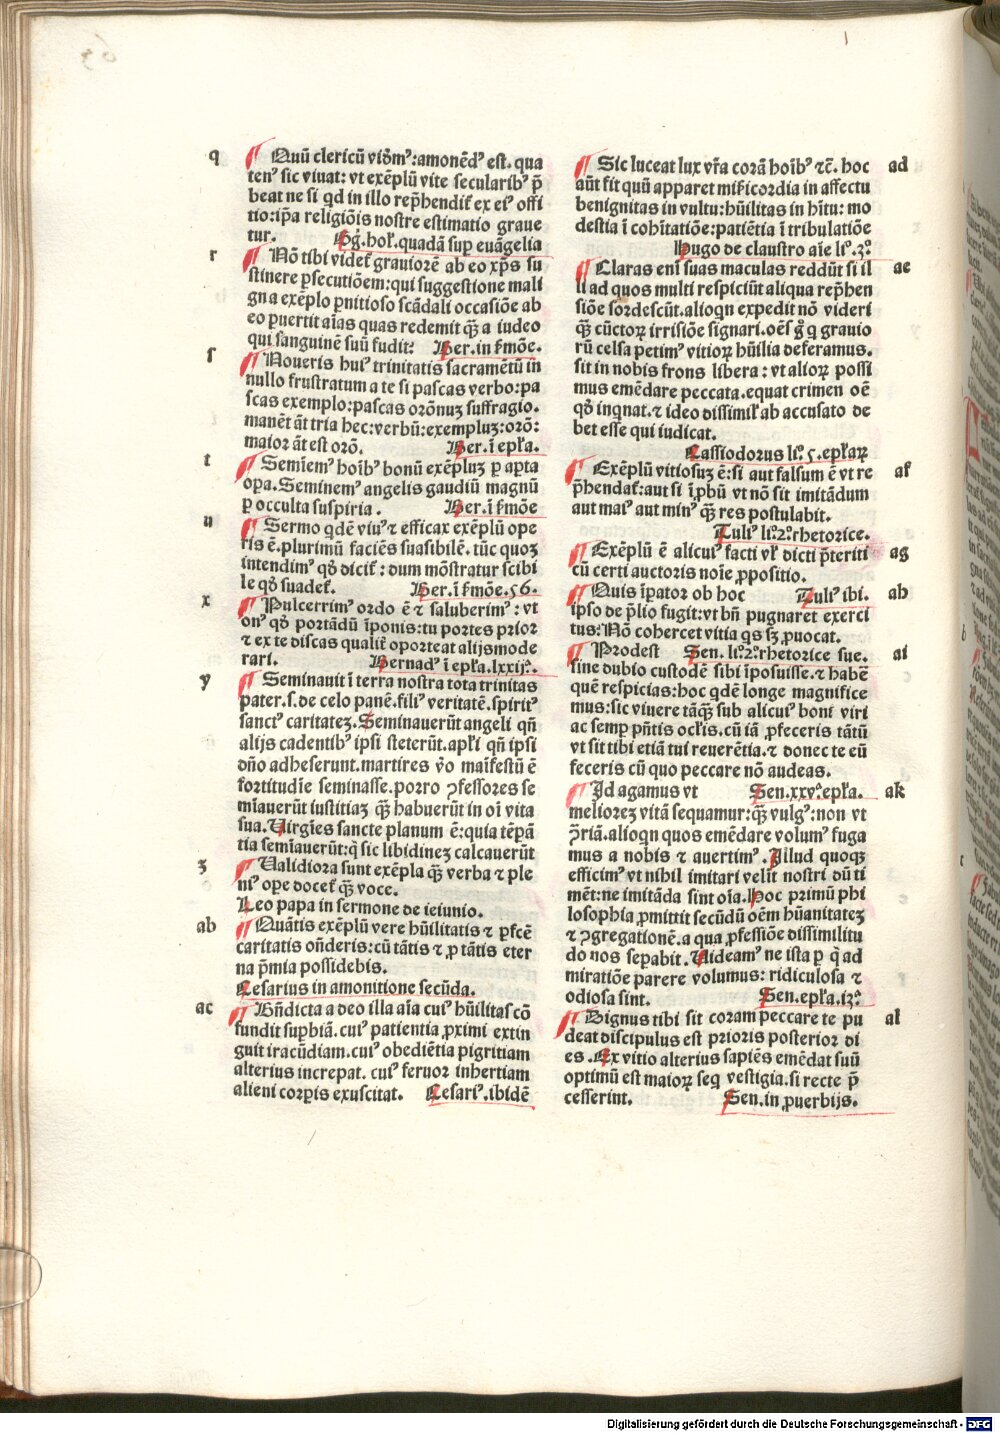 q ¶ Quū clericū vidᵐꝰ:amonēdꝰ est. qua
tenꝰ sic viuat: vt exēplū vite secularibꝰ p̄
beat ne si qd in illo rep̄hendit̄ ex eiꝰ offi
tio:ip̄a religiōis nostre estimatio graue
tur. Gg̃.hoł.quadā sup euāgelia
r ¶ Nō tibi videt̄ grauiorē ab eo xp̄s su
stinere ꝑsecutiōem:qui suggestione mali
gna exēplo ꝑnitioso scādali occasiōe ab
eo ꝑuertit aīas quas redemit q̄ꝫ a iudeo
qui sanguinē suū fudit: Ber.in ẜmōe.
ſ ¶ Noueris huiꝰ trinitatis sacramētū in
nullo frustratum a te si pascas verbo:pa
scas exemplo:pascas orōnuꝫ suffragio.
manēt āt tria hec:verbū:exempluꝫ:orō:
maior āt est orō. Ber.ī epła.
t ¶ Semīemꝰ hoībꝰ bonū exēpluꝫ ꝑ aꝑta
oꝑa.Seminemꝰ angelis gaudiū magnū
ꝑ occulta suspiria. Ber.ī ẜmōe
u ¶ Sermo qdē viuꝰ ⁊ efficax exēplū ope
ris ē.plurimū faciēs suasibilē.tūc quoꝫ
intendimꝰ qd̄ dicit̄: dum mōstratur scibi
le qd̄ suadet̄. Ber.ī ẜmōe.56.
x ¶ Pulcerrimꝰ ordo ē ⁊ saluberimꝰ: vt
onꝰ qd̄ portādū īponis:tu portes prior
⁊ ex te discas qualit̄ oporteat alijsmode
rari. Bernadꝰ ī epła.lxxijᵃ.
y ¶ Seminauit ī terra nostra tota trinitas
pater.s.de celo panē.filiꝰ veritatē.spiritꝰ
sanctꝰ caritateꝫ.Seminauerūt angeli qn̄
alijs cadentibꝰ ipsi steterūt.apłi qn̄ ipsi
dn̄o adheserunt.martires v̄o maīfestū ē
fortitudīe seminasse.porro ꝯfessores se
mīauerūt iustitiaꝫ q̄ꝫ habuerūt in oī vita
sua.Uirgīes sancte planum ē:quia tēꝑā
tia semīauerūt:q̄ sic libidineꝫ calcauerūt
ꝫ ¶ Ualidiora sunt exēpla q̄ꝫ verba ⁊ ple
niꝰ oꝑe docet̄ q̄ꝫ voce.
Leo papa in sermone de ieiunio.
ab ¶ Quātis exēplū vere hūilitatis ⁊ ꝑfcē
caritatis on̄deris:cū tātis ⁊ ꝓ tātis eter
na p̄mia possidebis.
Cesarius in amonitione secūda.
ac ¶ Bn̄dicta a deo illa aīa cuiꝰ hūilitas cō
fundit suꝑbiā.cuiꝰ patientia ꝓximi extin
guit iracūdiam.cuiꝰ obediētia pigritiam
alterius increpat. cuiꝰ feruor inhertiam
alieni corꝑis exuscitat. Cesariꝰ.ibidē
ad ¶ Sic luceat lux vr̄a corā hoībꝰ ⁊c̄. hoc
aūt fit quū apparet mīẜicordia in affectu
benignitas in vultu:hūilitas in hītu: mo
destia ī cohītatiōe:patiētia ī tribulatiōe
Hugo de claustro aīe liᵒ.3ᵒ.
ae ¶ Claras eni suas maculas reddūt si il
li ad quos multi respiciūt aliqua rep̄hen
siōe sordescūt.alioqn expedit nō videri
q̄ꝫ cūctoꝝ irrisiōe signari.oēs g̊ q grauio
rū celsa petimꝰ vitioꝝ hūilia deferamus.
sit in nobis frons libera: vt alioꝝ possi
mus emēdare peccata.equat crimen oē
qd̄ inqnat.⁊ ideo dissimił ab accusato de
bet esse qui iudicat.
Cassiodorus liᵒ.5.epłaꝝ
af ¶ Exēplū vitiosuꝫ ē:si aut falsum ē vt re
p̄hendat̄:aut si īꝓbū vt nō sit imitādum
aut maiꝰ aut minꝰ q̄ꝫ res postulabit.
Tuliꝰ liᵒ2ᵒrhetorice.
ag ¶ Exēplū ē alicuiꝰ facti vł dicti p̄teriti
cū certi auctoris noīe ꝓpositio.
ah ¶ Quis īꝑator ob hoc Tuliꝰ ibi.
ipso de p̄lio fugit:vt bn̄ pugnaret exerci
tus:Nō cohercet vitia qs sꝫ ꝓuocat.
ai ¶ Prodest Sen. liᵒ2ᵒrhetorice sue.
sine dubio custodē sibi īposuisse.⁊ habē
quē respicias:hoc qdē longe magnifice
mus:sic viuere tāq̄ꝫ sub alicuiꝰ boni viri
ac semꝑ pn̄tis ocłis.cū iā ꝓfeceris tātū
vt sit tibi etiā tui reuerētia.⁊ donec te eū
feceris cū quo peccare nō audeas.
ak ¶ Id agamus vt Sen.xxvᵃepła.
melioreꝫ vitā sequamur:q̄ꝫ vulgꝰ:non vt
ꝯriā.alioqn quos emēdare volumꝰ fuga
mus a nobis ⁊ auertimꝰ.Illud quoqꝫ
efficimꝰ vt nihil imitari velīt nostri dū ti
mēt:ne imitāda sint oīa.Hoc primū phi
losophia ꝓmittit secūdū oēm hūanitateꝫ
⁊ ꝯgregationē.a qua ꝓfessiōe dissimilitu
do nos seꝑabit.Uideamꝰ ne ista ꝑ q̄ ad
miratiōe parere volumus: ridiculosa ⁊
odiosa sint. Sen.epła.13ᵃ.
al ¶ Dignus tibi sit coram peccare te pu
deat discipulus est prioris posterior di
es.Ex vitio alterius sapiēs emēdat suū
optimū est maioꝝ seq vestigia.si recte p̄
cesserint. Sen.in ꝓuerbijs.
Digitalisierung gefördert durch die Deutsche Forschungsgemeinschaft - DFG